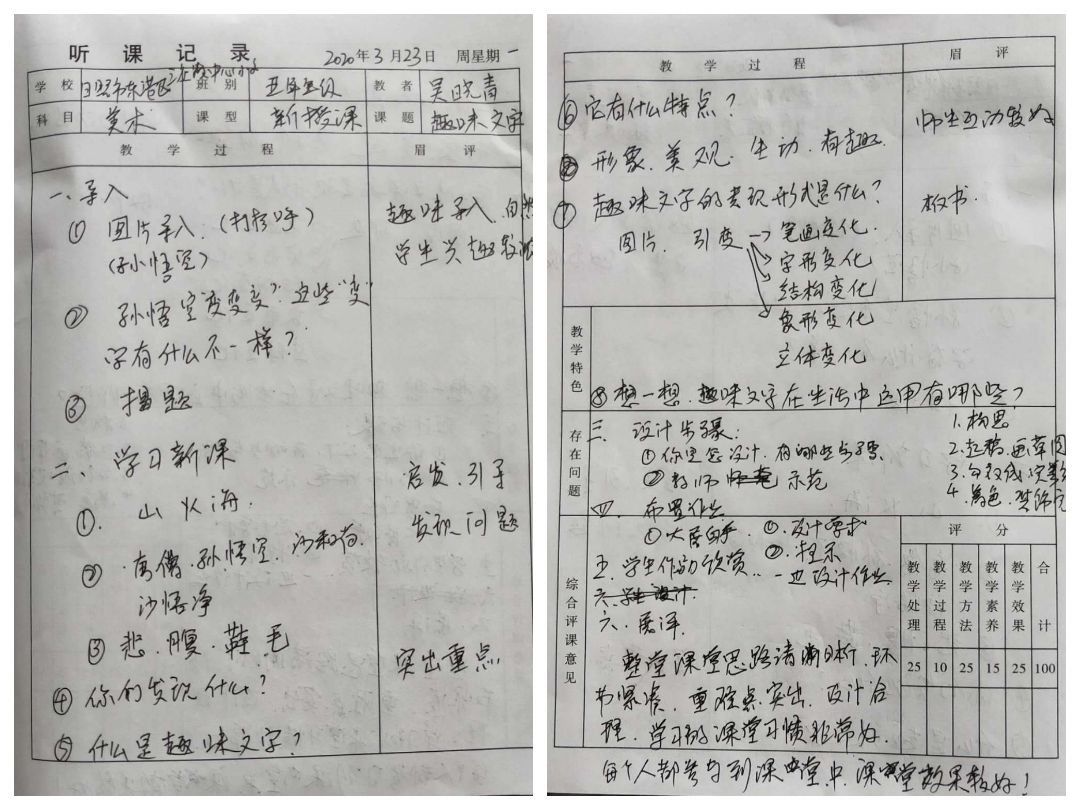 听课记录 2020年3月23日 周星期一
学校 日照市东港区三庄镇中心小学 班别 五年级 教者 吴晓青
科目 美术 课型 新授课 课题 趣味文字
教学过程 眉评
一、导入
① 图片导入.(打招呼) 趣味导入.自然
(孙小悟空) 学生兴趣较浓
② 孙悟空"变变变"?这些"变"
字有什么不一样?
③ 揭题
二、学习新课 启发.引导
①. 山 火 海. 发现问题
② 唐僧.孙悟空.沙和尚
沙悟净
③ 悲.腹.鞋 毛 突出重点
④ 你们发现什么?
⑤ 什么是趣味文字?
教学过程 眉评
⑥ 它有什么特点? 师生互动较好
形象.美观.生动.有趣.
⑦ 趣味文字的表现形式是什么? 板书.
图片. 引变 → 笔画变化.
字形变化
结构变化
象形变化
立体变化
教学特色
⑧ 想一想.趣味文字在生活中运用有哪些?
存在问题
三. 设计步骤: 1.构思
① 你是怎设计.有哪些步骤. 2.起稿.画草图
② 教师 示范 3.
4.着色.
四. 布置作业
① 大展身手. ①.设计要求
②.提示
五.学生作品欣赏.. 一边设计作业
六.学生设计.
六.展评.
综合评课意见
评分
教学处理 教学过程 教学方法 教学素养 教学效果 合计
25 10 25 15 25 100
整堂课堂思路清晰.环
节紧凑.重难点突出.设计合
理.学习的课堂习惯非常好.
每个人都参与到课堂中.课堂效果较好!